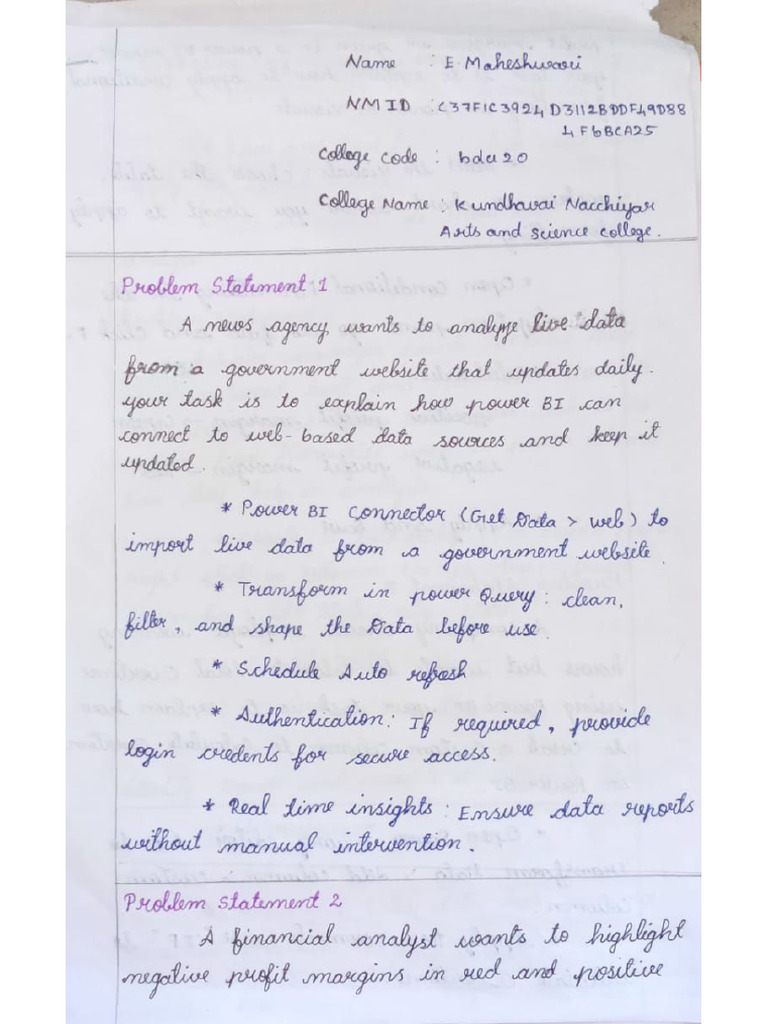 Name : E. Maheshwari
NM ID : C37F1C3924D3112BDDF49D88
4F6BCA25
College code : bdu20
College Name : Kundhavai Nacchiyar
Arts and Science college.
Problem Statement 1
A news agency wants to analyze live data
from a government website that updates daily.
your task is to explain how power BI can
connect to web-based data sources and keep it
updated.
* Power BI Connector (Get Data > web) to
import live data from a government website.
* Transform in power Query : clean,
filter, and shape the Data before use.
* Schedule Auto refresh
* Authentication : If required, provide
login credents for secure access.
* Real time insights : Ensure data reports
without manual intervention.
Problem Statement 2
A financial analyst wants to highlight
negative profit margins in red and positive